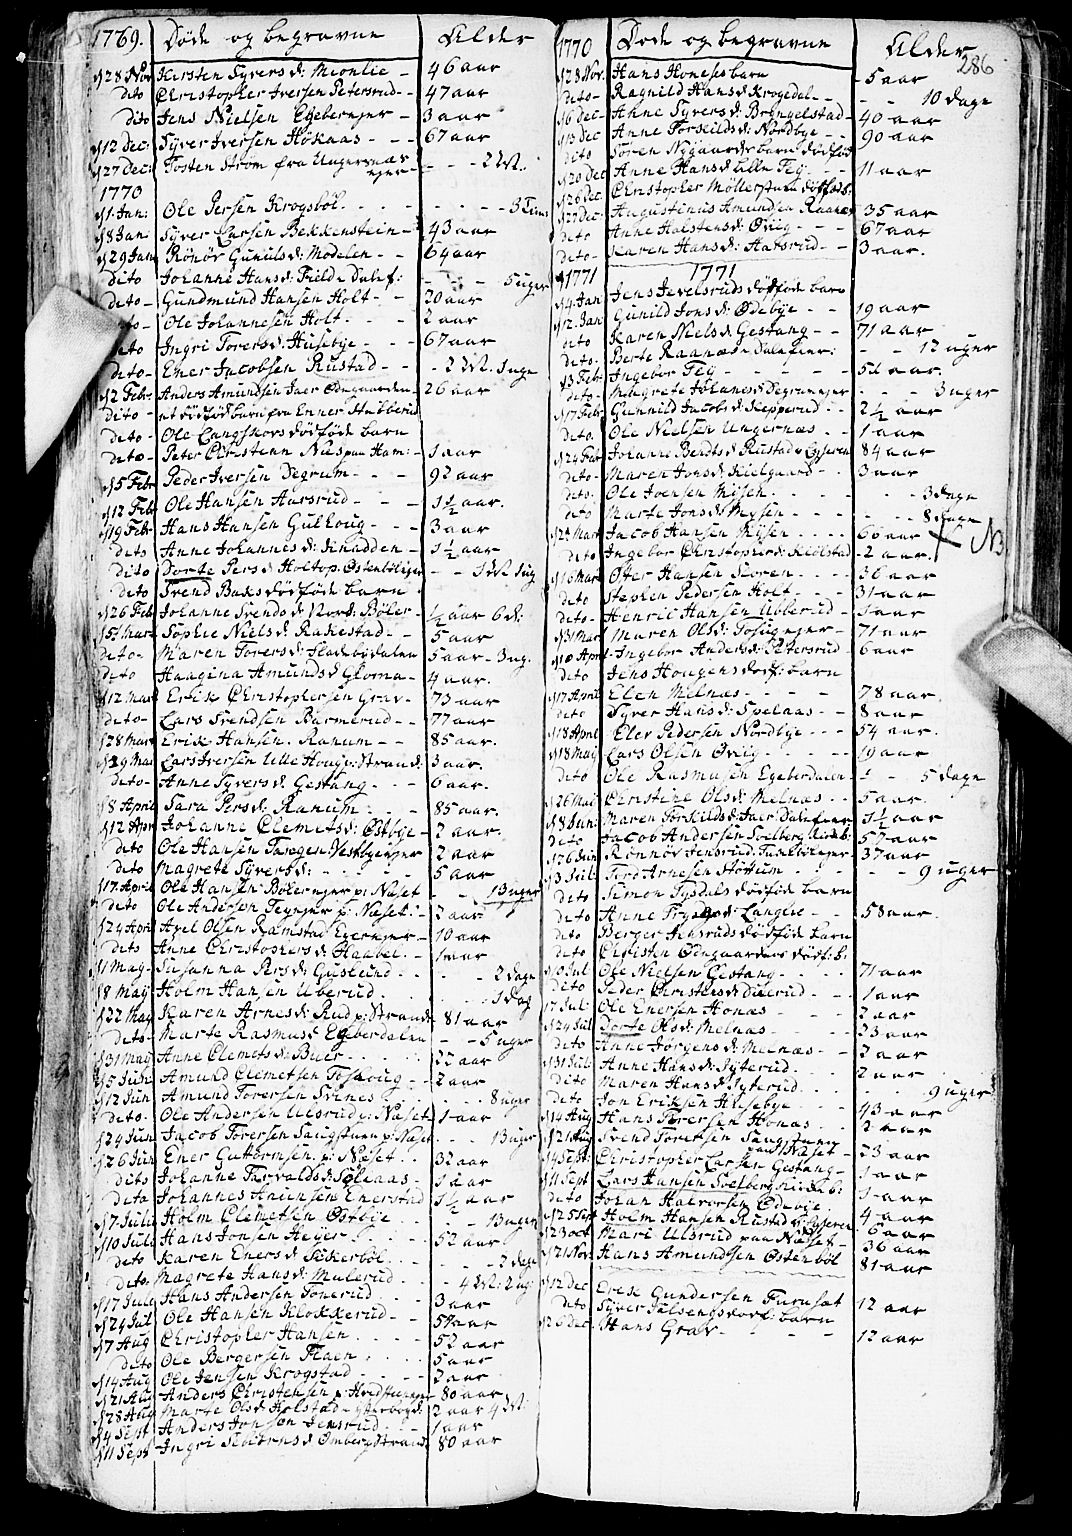 1769. Døde og begravne Alder
d 28 Nov Kirsten Syvers d: Monlie - 46 aar
dito Christopher Iversen Petersrud - - 47 aar
dito Jens Nielsen Egebereyer - 3 aar
d 12 Dec: Syver Iversen Hokaas - - - 67 aar
d 27 Dec: Tosten Strøm fra Ungersnæs eyer - - - - 2 M.
1770
d 1. Jan: Ole Persen Krogsbøl - - - 3 Tim
d 8 Jan: Syver Larsen Bekkenstein - 43 aar
d 29 Jan Rønør Gunulfs d: Modelen - - 64 aar
dito Johanne Hans d: Field Dalef: - - - 5 uger
dito - Gundmund Hansen Holt - - 20 aar
dito - Ole Johannesen Holt - - - 2 aar
dito Ingri Torers d: Husebye - - - 67 aar
dito - Ener Jacobsen Rustad - - - 2 M. 1 uge
d 2 Febr: Anders Amundsen Jaer Ødegaarden 26 aar
dito - et dødfød barn fra Enner Hubberud
dito - Ole Langskovs dødføde barn
dito - Peter Christenn Nus paa Ham: - 1 aar
d 5 Febr Peder Iversen Degrum - - - 92 aar
d 12 Febr Ole Hansen Aarsrud - - 1½ aar.
d 19 Febr Hans Hansen Gulhoug - - - 3 aar
dito Anne Johannes d: Knadden - - 1½ aar
dito Dorte Pers d: Holtop. Østenbøl eyer - - 1 M. 1 ug
dito Svend Baks dødføde barn
d 26 Feb Johanne Svends d: Nord: Bøler - ½ aar 6 d:
d 5 Mar Sophie Niels d: Rakestad - - 5 aar
dito - Maren Torers d: Sladebydalen 5 aar - 3 ug.
dito Haagina Amunds d: Gloma - 4 aar.
d 12 Mar Erik Christophersen Grav - 73 aar
dito - Lars Svendsen Barmerud - - 77 aar
d 28 Mar Erik Hansen. Ranum - - 85 aar.
d 29 Mar Lars Iversen Lille Houg p: Strand: 3 aar.
dito - Anne Syvers d: Gestang - - 6 aar.
d 8 April Sara Pers d: Ranum - - - 85 aar.
d 12 Apr Johanne Clemets d: Østbye - - 2 aar.
dito Ole Hansen Tangen. Vestbyeeyer 2 aar
dito Magrete Syvers d: - - - - - 5 aar
d 17 April Ole Hansen Bølereyer p: Næset - - 13 uger
dito Ole Andersen Teyeyer p: Næset. - 2 aar.
d 24 Apri Axel Olsen Ramstad Egereyer - - 10 aar
dito Anne Christophers d: Haabel - - 1 aar
d 1 May - Susanna Pers d: Guslund - - - 2 dage
d 8 May Holm Hansen Uberud - - - - 1 dag
d 22 May Karen Arnes d: Rud p: Strand 81 aar
dito - Marte Rasmus d Egeberdalen - - 5 uger
d 31 May Anne Clemets d: Buer - - - 22 aar
d 5 Juni Amund Clemetsen Toshoug - - 2 aar
d 12 Jun Amund Torersen Svines - - - 8 uger
dito - Ole Andersen Ulsrud p: Næset 1 aar
d 24 Jun Jacob Torersen Saugstuen p: Næset - - - 13 uger
d 26 Jun Ener Guttormsen p: Næset - - 32 aar
dito Johanne Tarvalds d: Solaas - - 1 aar
dito Johannes Aniensen Enerstad 1½ aar
d 7 Julii Holm Clemetsen Østbye - - - - 13 uger
d 10 Julii Hans Jonsen Heyer - - - 52 aar
dito Karen Eners d: Sikerbøl - - - - 2 dage
dito. Magrete Hans d: Mulerud - - - 4 M: 2 ug:
d 17 July Hans Andersen Tonerud - - 3 aar
d 24 Jul Ole Hansen Klokkerud - - 51 aar
d 7 Aug Christopher Hansen - - - - 52 aar
dito Ole Bergersen Flaen - - - - 5 aar
d 14 Aug Ole Jensen Krogstad - - - 2 aar
d 21 Aug Anders Christensen p: Hvidsteneyer 80 aar
d 28 Aug Marte Ols d: Holstad - ytterbøyd: 2 aar 4 M:
d 4 Sept Anders Jonsen Jensrud - - - 1 aar
d 11 Sept Ingri Siborns d: Omberg Strand: 80 aar
1770 Døde og begravne Alder
286
d 28 Nov. Hans Honesbarn - 5 aar
dito - Ragnild Hans d: Krogedal - - - - 10 dage
d 6 Dec - Anne Syvers d: Bryngelstad - 40 aar
d 13 Dec Anne Torkilds d: Nordbye - - 90 aar
dito Søren Nygaards barn dødfød
d 20 Dec Anne Hans d: Lille Tey - - - 11 aar
d 26 Dec Christopher Møllerstuen dødføds b:
d 27 Dec: Augustinus Amundsen Raanæs 35 aar
dito Anne Halstens d: Qviig - - - 67 aar
dito - Karen Hans d: Aarsrud - - 3 aar.
1771 1771
d 4. Jan Jens Jevelsruds dødføde barn
d 12. Jan Gunild Jons d: Ødebye - - 19 aar
dito Karen Niels d: Gestang - - 71 aar
dito. Berte Raanæs Daleeier: - - 12 uger
d 3 Febr Ingebor Tey - - - - - 51 aar.
dito - Magrete Johanes d: Degrumeyer - - - 3 uger
d 17 Febr Gunnild Jacobs d: Skepperud - - 2½ aar
dito. Ole Nielsen Ungernæs - - 1 aar
d 24 Feb Johanne Bendts d: Rustad v Lyseren 84 aar
dito - Maren Jons d: Kielgaard - - 3 aar
dito. Ole Joensen Misen - - - - - 3 dage
dito Marte Jons d: Mysen - - - - 8 dage
d 24 Mar Jacob Hansen Mysen - - - 60 aar
dito Ingebor Christopher d: Kiølstad - 2 aar NB
d 16 Mar Ofter Hansen Sloren - - - 36 aar
dito Stephen Pedersen Holt - - - 31 aar
dito - Henrik Hansen Ubberud - - 1 aar
d 31 Mar Maren Ols d: Tosugeyer - - 71 aar
d 10 April Ingebor Anders d: Petersrud - - 6 aar
dito Jens Hougens dødf: barn
d 17 April Elen Melnæs - - - - - 78 aar
dito Syver Hans d: Spelaas - - 8 aar
d 18 April Eler Pedersen Nordbye - - - 54 aar.
d 18 May Lars Olsen Qviig - - - 19 aar
dito Ole Rasmusen Egeberdalen - - - 5 dage
d 26 Mai Christine Ols d: Melnæs - - 5 aar
d 8 Jun: Maren Torkilds d: Jaer Daleeier 1½ aar
dito Jacob Andersen Solberg Kirke b: 57 aar
d 26 Jun Rønnør Jensrud: Tuseboleyer 37 aar
d 3 Julii Tord Arnesen Hottum - - - - 9 uger
dito Simon Tysdals dødføde barn
dito Anne Fryds d: Langlie - - 58 aar.
dito Berger Jensruds dødføde barn
dito Christen Ødegaardens dødf: b:
d 10 Jul Ole Nielsen Gestang - - - 71 aar
dito Peder Christens d: Dillerud - - - 1 aar
d 17 Jul: Ole Enersen Honæs - - 2 aar
d 24 Jul Dorte Ols d: Melnæs - - - 23 aar
dito Anne Jørgens d: Melnæs - - 2 aar
d 31 Juli Anne Hans d: Syterud - - - 2 aar
dito Maren Hans d: Syterud - - - - 9 uger
dito Jon Eriksen Husebye - - - 43 aar
d 14 Aug Hans Torersen Honæs - - 2 aar
d 21 Aug Svend Torersen Saugstuen paa Næset - 23 aar
d 4 Sept: Christopher Larsen Gestang - - 1 aar
d 11 Sept Lars Hansen Solberg Kirke b: 1 aar
dito Johan Halvorsen Ødebye - - 4 aar
d 25 Sept Holm Hansen Rustad v Lyseren 6 aar
d 23 Oct: Mari Ulsrud paa Næset - - 36 aar
d 21 Nov: Hans Amundsen Østenbøl 81 aar
d 12 Dec Erik Gundersen Furuset 12 aar
dito Syver Julsengs dødf: barn
d 26 Dec. Hans Grav - - - - 12 aar